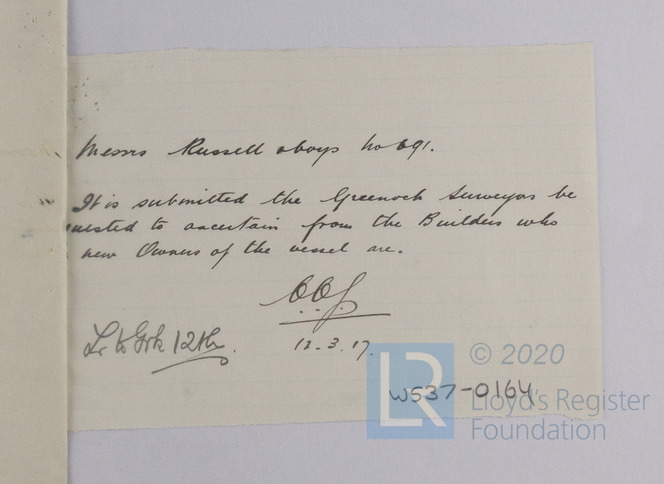 Messrs Russell & Coys No 691.
It is submitted the Greenock Surveyors be
uested to ascertain from the Builders who
new Owners of the vessel are.
12.3.17.
Lr to Grk 12th.
W537-0164
© 2020
LR
Lloyd's Register
Foundation